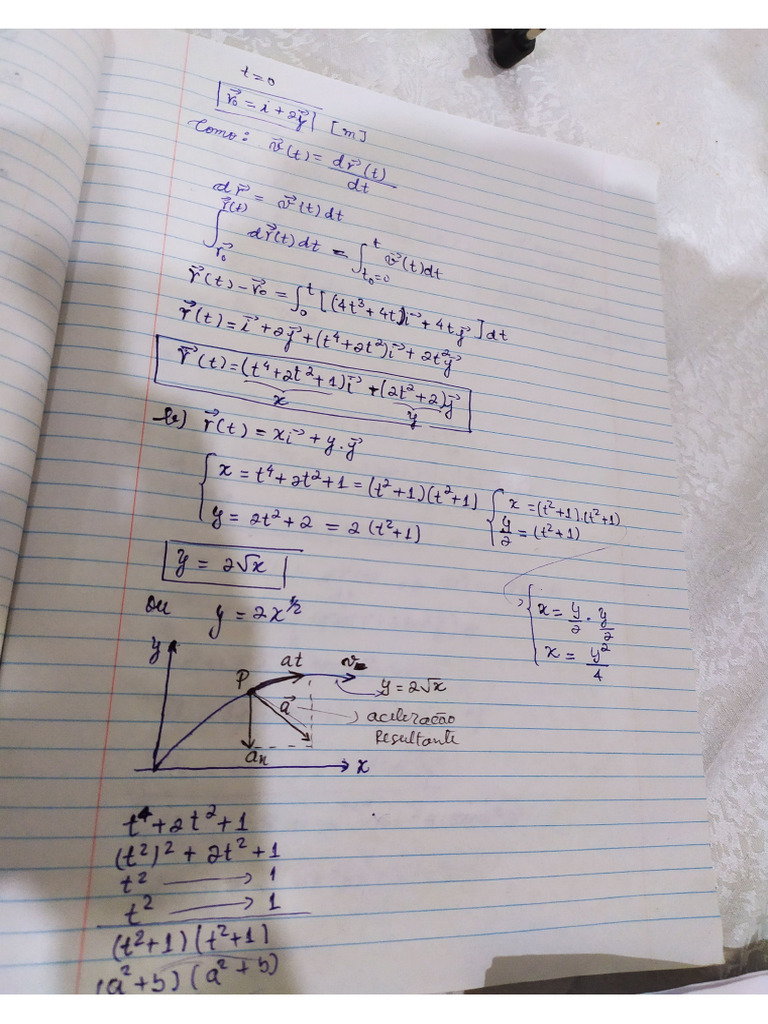 t=0
r⃗₀ = i + 2y⃗ [m]
Como: v⃗(t) = dr⃗(t)/dt
dr⃗ = v⃗(t)dt
∫_{r⃗₀}^{r⃗(t)} dr⃗(t)dt = ∫_{t₀=0}^{t} v⃗(t)dt
r⃗(t) - r⃗₀ = ∫₀ᵗ [(4t³+4t)i⃗ + 4ty⃗]dt
r⃗(t) = i⃗ + 2y⃗ + (t⁴+2t²)i⃗ + 2t²y⃗
r⃗(t) = (t⁴+2t²+1)i⃗ + (2t²+2)y⃗
x y
b) r⃗(t) = xi⃗ + y.y⃗
{ x = t⁴+2t²+1 = (t²+1)(t²+1) { x = (t²+1).(t²+1)
y = 2t²+2 = 2(t²+1) y/2 = (t²+1)
y = 2√x
ou y = 2x^½
{ x = y/2 . y/2
x = y²/4
y at v
P a⃗ y = 2√x
aceleração
Resultante
an x
t⁴+2t²+1
(t²)²+2t²+1
t² → 1
t² → 1
(t²+1)(t²+1)
(a²+b)(a²+b)